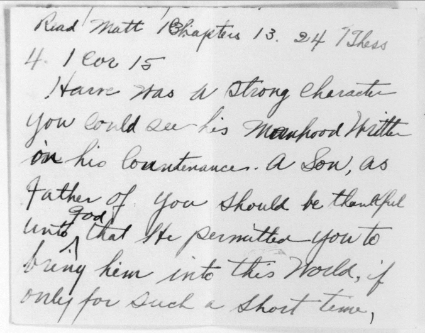 Read Matt Chapters 13. 24 1 Thess
4. 1 Cor 15
Harve was a strong character
you could see his Manhood Written
on his Countenance. A Son, as
Father of you should be thankful
unto God that He permitted you to
bring him into this World, if
only for such a short time,